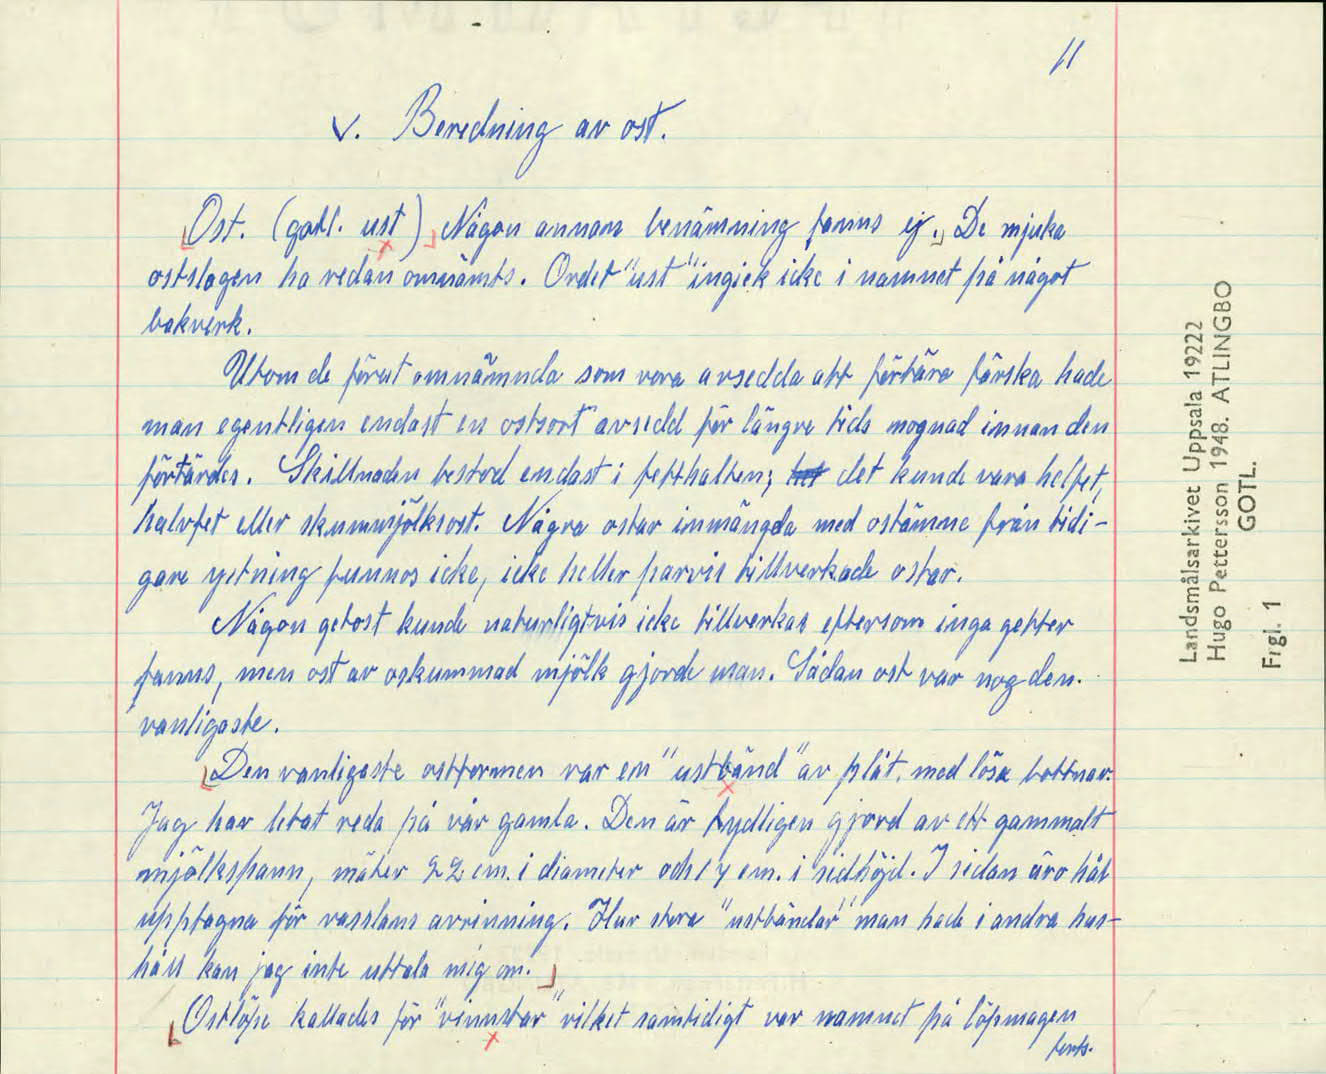 11
V. Beredning av ost.
Ost. (gotl. ust) Någon annan benämning fanns ej. De mjuka
ostslagen ha redan omnämts. Ordet "ust" ingick icke i namnet på något
bakverk.
Utom de förut omnämnda som vora avsedda att förtära färska hade
man egentligen endast en ostsort avsedd för längre tids mognad innan den
förtärdes. Skillnaden bestod endast i fetthalten; det kunde vara helfet,
halvfet eller skummjölksost. Några ostar inmängda med ostämne från tidi-
gare ystning funnos icke, icke heller parvis tillverkade ostar.
Någon getost kunde naturligtvis icke tillverkas eftersom inga getter
fanns, men ost av oskummad mjölk gjorde man. Sådan ost var nog den
vanligaste.
Den vanligaste ostformen var en "ustbånd" av plåt. med lösa bottnar.
Jag har letat reda på vår gamla. Den är tydligen gjord av ett gammalt
mjölkspann, mäter 22 cm. i diameter och 17 cm. i sidhöjd. I sidan äro hål
upptagna för vasslans avrinning. Hur stora "ustbåndar" man hade i andra hus-
håll kan jag inte uttala mig om.
Ostlöpe kallades för "vinnstar" vilket samtidigt var namnet på löpmagen
forts.
Landsmålsarkivet Uppsala 19222
Hugo Pettersson 1948. ATLINGBO
GOTL.
Frgl. 1